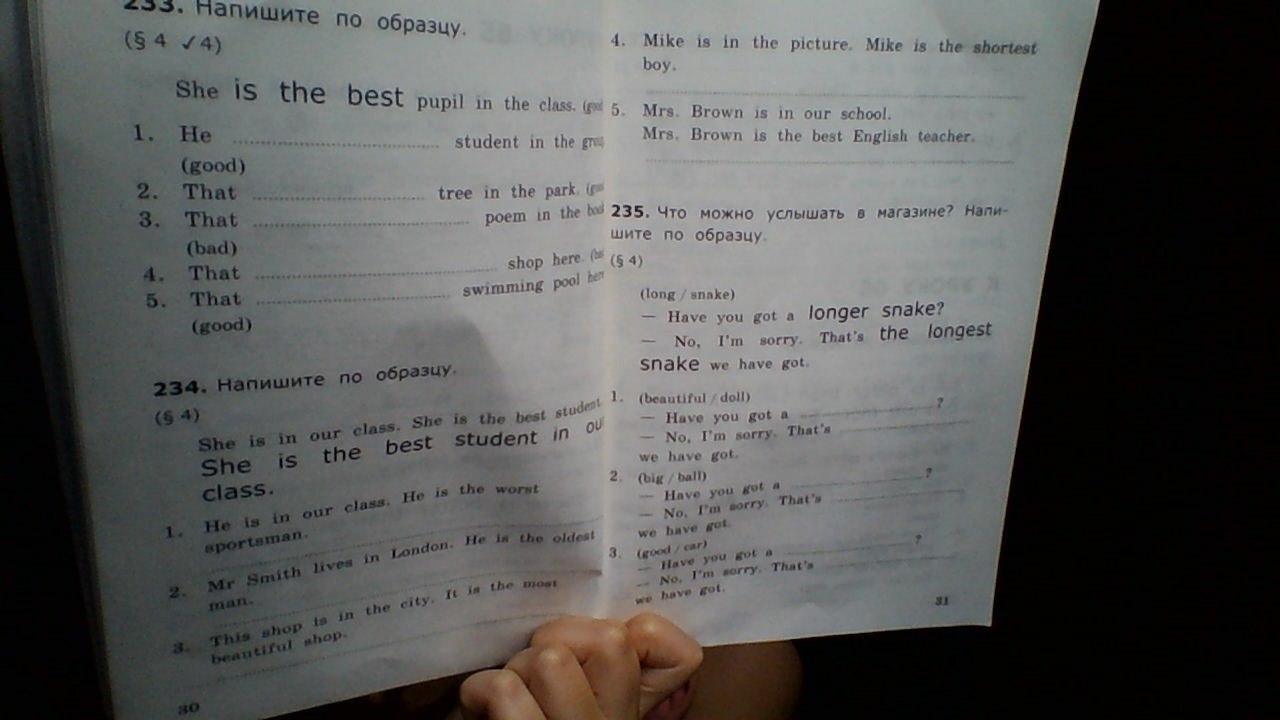 233. Напишите по образцу.
(§ 4 ✓4)
She is the best pupil in the class.
1. He .......... student in the
(good)
2. That .......... tree in the park.
3. That .......... poem in the
(bad)
4. That .......... shop here.
5. That .......... swimming pool
(good)
234. Напишите по образцу.
(§ 4)
She is in our class. She is the best student
She is the best student in
class.
1. He is in our class. He is the worst
sportsman.
2. Mr Smith lives in London. He is the oldest
man.
3. This shop is in the city. It is the most
beautiful shop.
30
4. Mike is in the picture. Mike is the shortest
boy.
5. Mrs. Brown is in our school.
Mrs. Brown is the best English teacher.
235. Что можно услышать в магазине? Напи-
шите по образцу.
(§ 4)
(long / snake)
— Have you got a longer snake?
— No, I'm sorry. That's the longest
snake we have got.
1. (beautiful / doll)
— Have you got a .......... ?
— No, I'm sorry. That's ..........
we have got.
2. (big / ball)
— Have you got a .......... ?
— No, I'm sorry. That's ..........
we have got.
3. (good / car)
— Have you got a .......... ?
— No, I'm sorry. That's ..........
we have got.
31